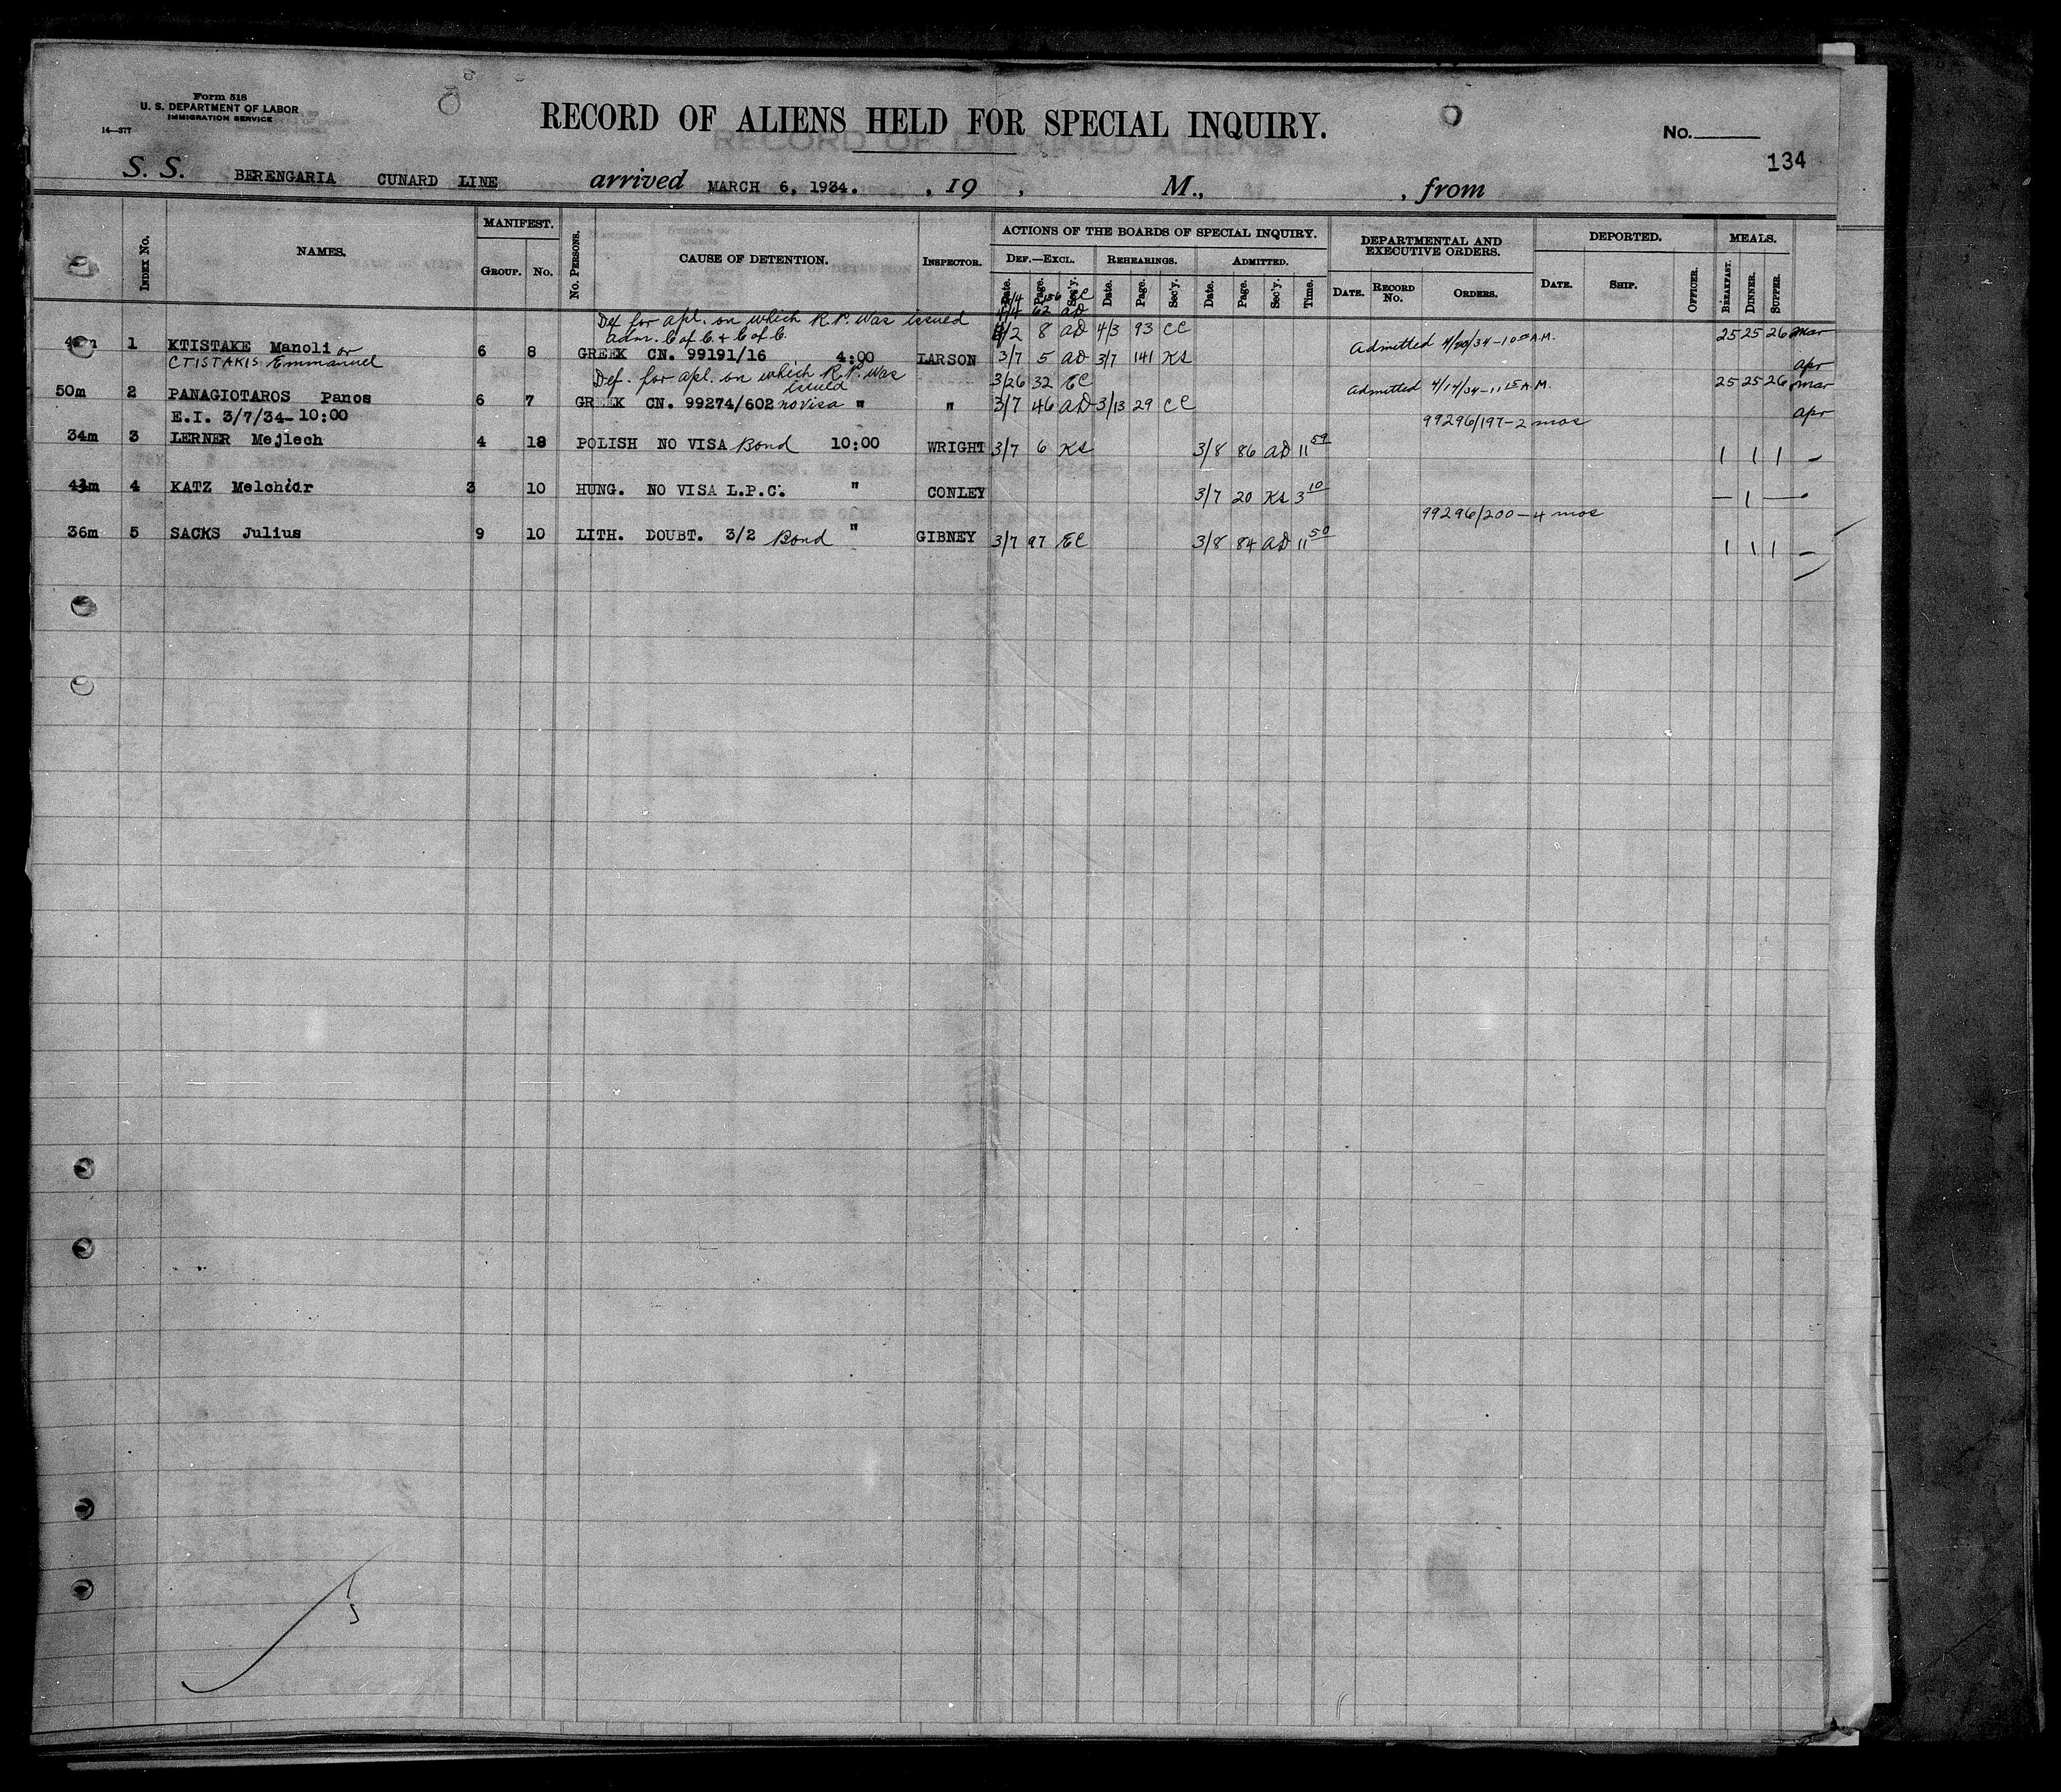 Form 518
U. S. DEPARTMENT OF LABOR
IMMIGRATION SERVICE
14—377
RECORD OF ALIENS HELD FOR SPECIAL INQUIRY.
No.
134
S. S. BERENGARIA CUNARD LINE arrived MARCH 6, 1934. , 19 , M., , from
INDEX No. NAMES. MANIFEST. GROUP. No. No. PERSONS. CAUSE OF DETENTION. INSPECTOR. ACTIONS OF THE BOARDS OF SPECIAL INQUIRY. DEPARTMENTAL AND EXECUTIVE ORDERS. DEPORTED. MEALS.
DEF.—EXCL. REHEARINGS. ADMITTED.
Date. Page. Sec'y. Date. Page. Sec'y. Date. Page. Sec'y. Time. DATE. RECORD No. ORDERS. DATE. SHIP. OFFICER. BREAKFAST. DINNER. SUPPER.
156 EC
4/4 62 AD
Def for apl. on which R.P. was issued 8 AD 4/3 93 CC
Adm. C of C + C of C. Admitted 4/20/34-10 00 A.M. 25 25 26 Mar
1 KTISTAKE Manoli or 6 8 GREEK CN. 99191/16 4:00 LARSON 3/7 5 AD 3/7 141 KS Apr
CTISTAKIS Emmanuel
Def. for apl. on which R.P. was issued 3/26 32 EC Admitted 4/17/34-11 15 A.M. 25 25 26 Mar
50m 2 PANAGIOTAROS Panos 6 7 GREEK CN. 99274/602 no visa " " 3/7 46 AD 3/13 29 CC Apr
E.I. 3/7/34-10:00 99296/197-2 mos
34m 3 LERNER Mejlech 4 18 POLISH NO VISA Bond 10:00 WRIGHT 3/7 6 KS 3/8 86 AD 11 59 1 1 1 –
43m 4 KATZ Melchior 3 10 HUNG. NO VISA L.P.C. " CONLEY 3/7 20 KS 3 10 — 1 —
99296/200-4 mos
36m 5 SACKS Julius 9 10 LITH. DOUBT. 3/2 Bond " GIBNEY 3/7 97 EC 3/8 84 AD 11 50 1 1 1 –
5